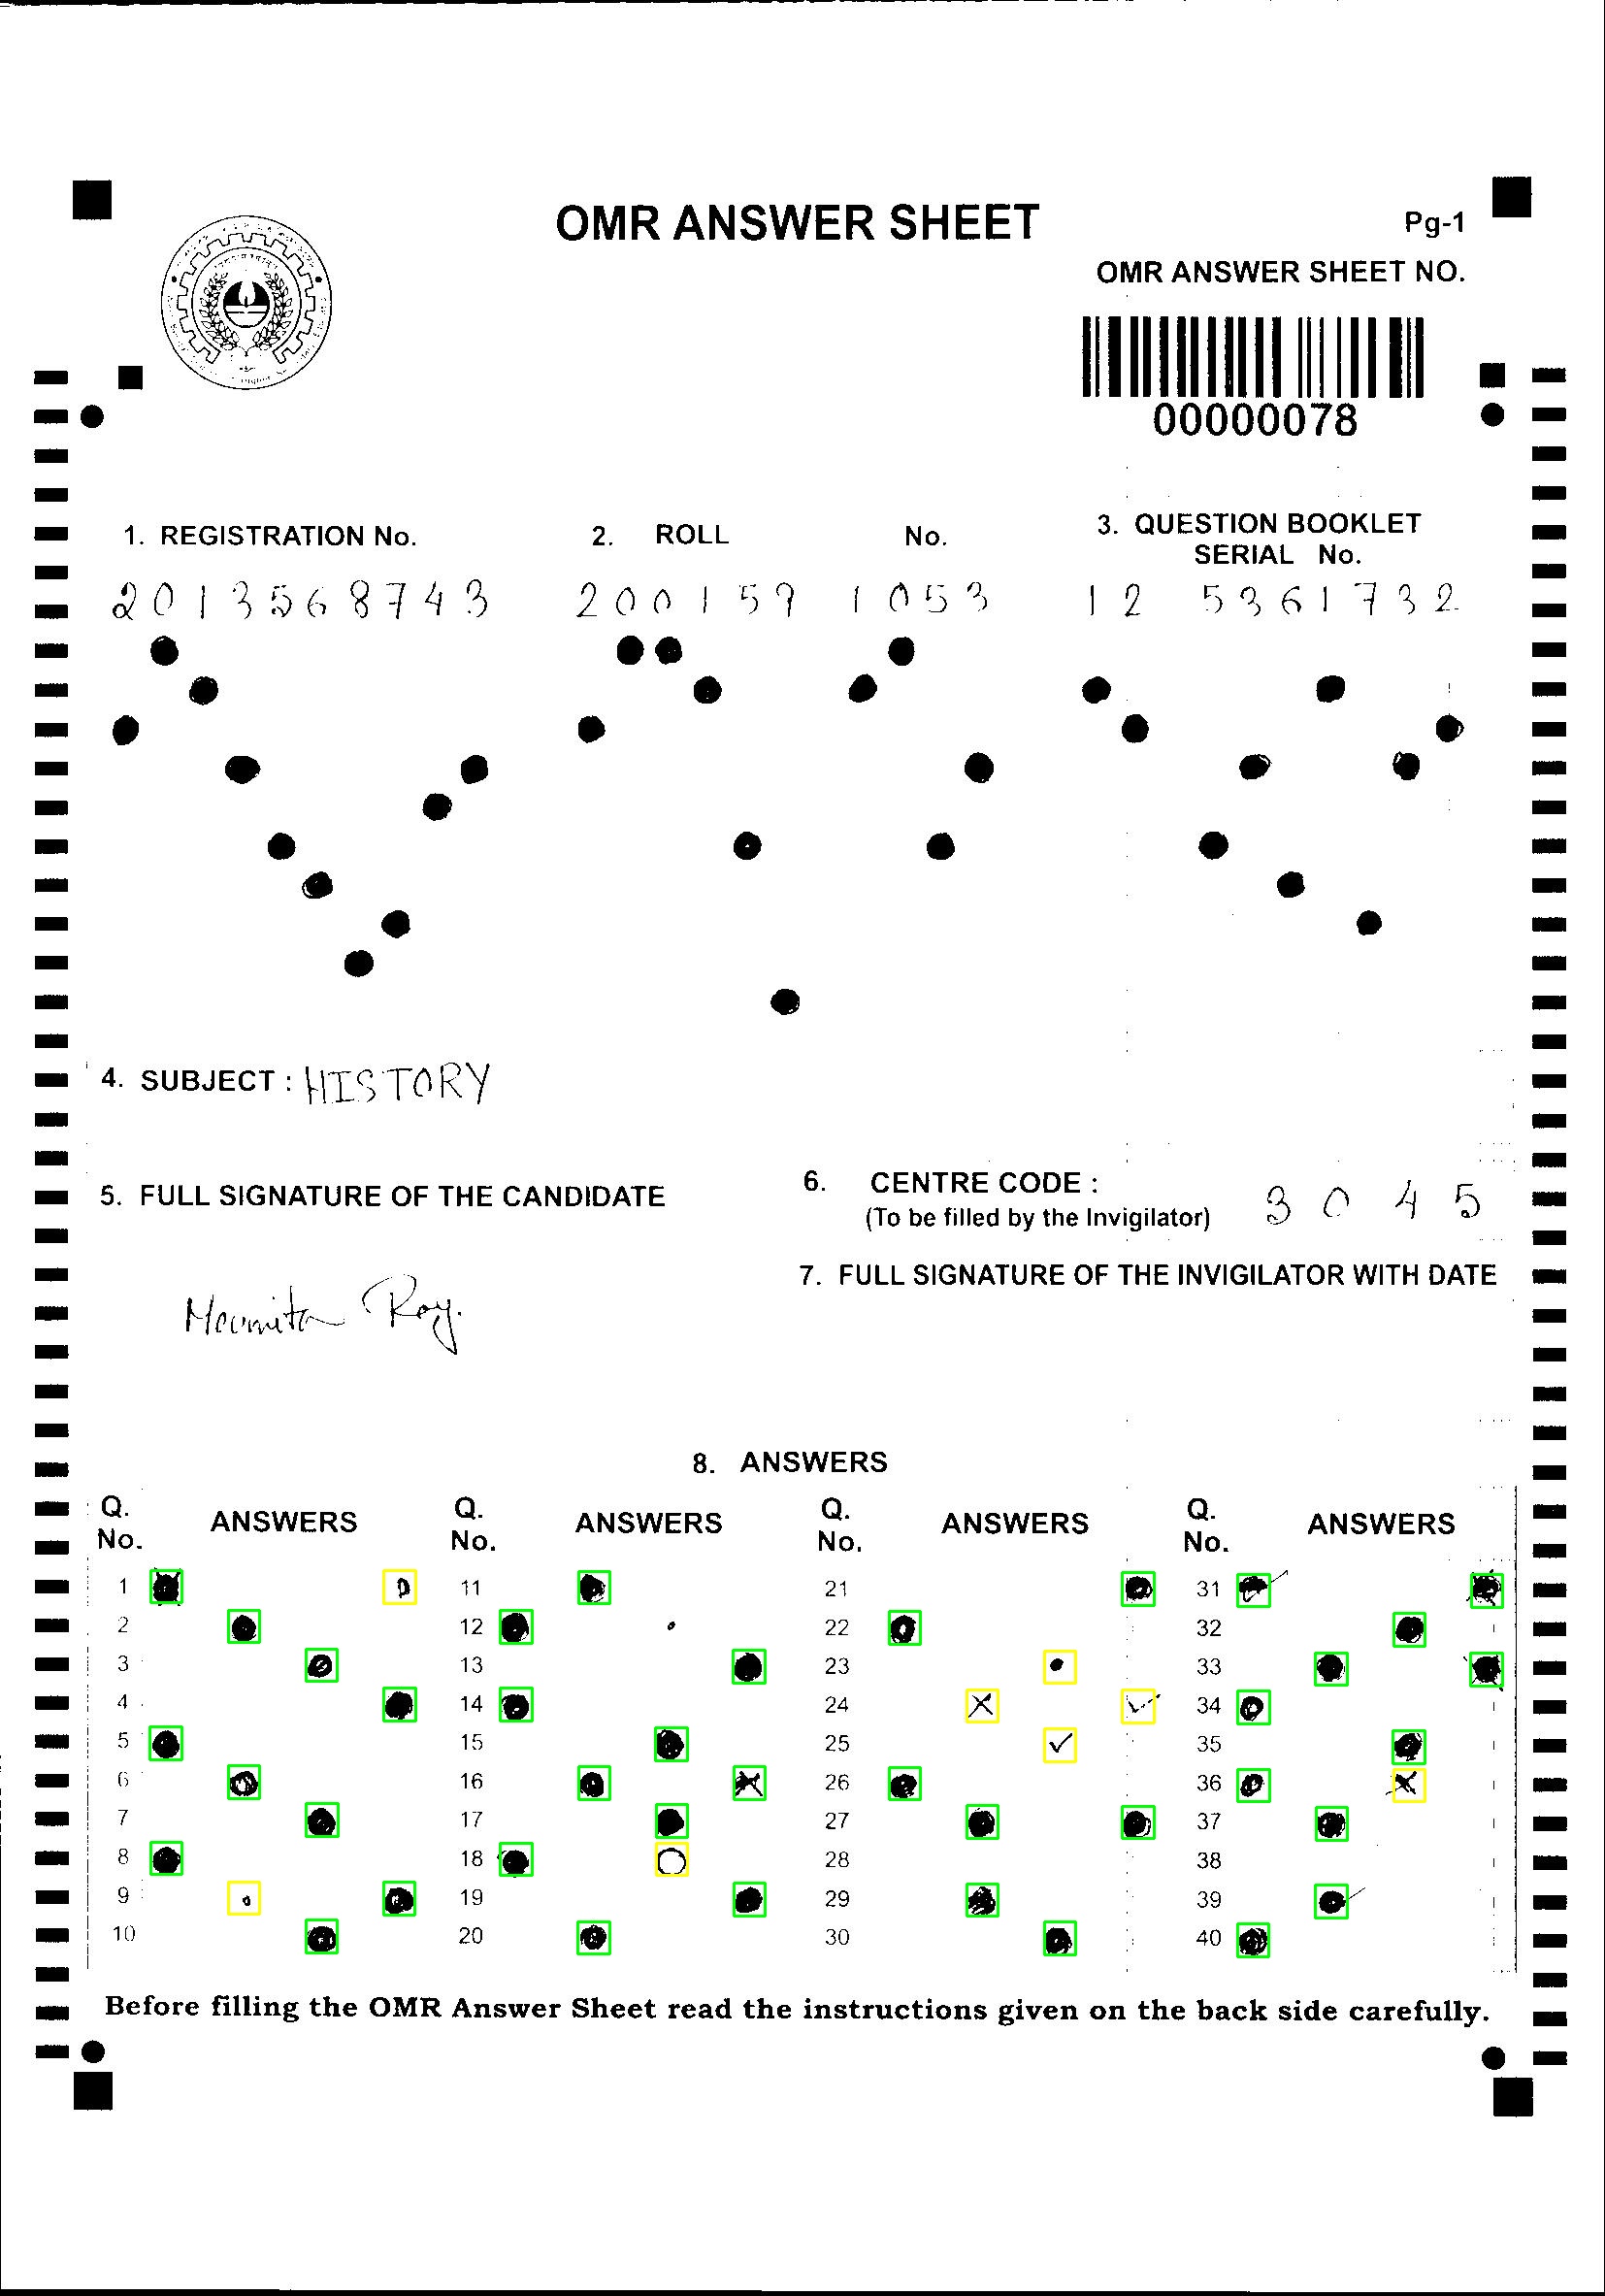 OMR ANSWER SHEET
Pg-1
OMR ANSWER SHEET NO.
00000078
1. REGISTRATION No.
2. ROLL No.
3. QUESTION BOOKLET
SERIAL No.
2013568743
200159 1053
12 5361732
4. SUBJECT : HISTORY
5. FULL SIGNATURE OF THE CANDIDATE
6. CENTRE CODE : 3045
(To be filled by the Invigilator)
7. FULL SIGNATURE OF THE INVIGILATOR WITH DATE
Moumita Roy.
8. ANSWERS
Q. No. ANSWERS Q. No. ANSWERS Q. No. ANSWERS Q. No. ANSWERS
1 11 21 31
2 12 22 32
3 13 23 33
4 14 24 34
5 15 25 35
6 16 26 36
7 17 27 37
8 18 28 38
9 19 29 39
10 20 30 40
Before filling the OMR Answer Sheet read the instructions given on the back side carefully.